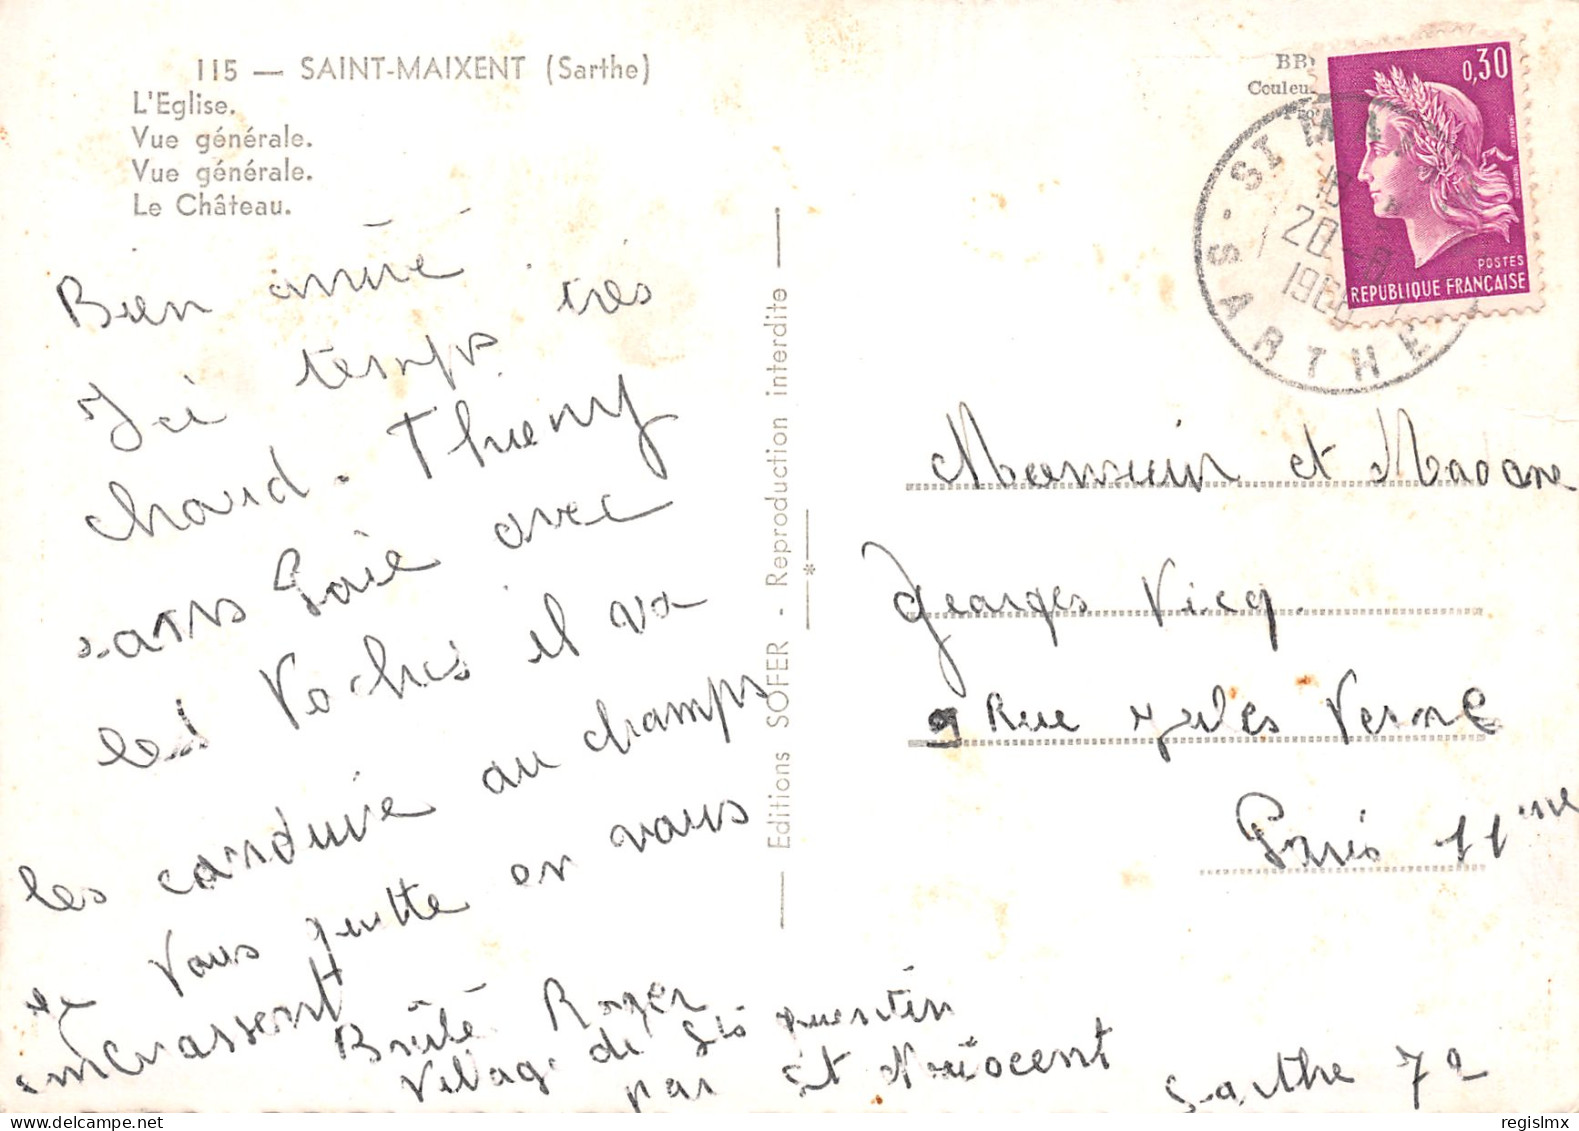 115 — SAINT-MAIXENT (Sarthe)
L'Eglise.
Vue générale.
Vue générale.
Le Château.
Bien arrivé
Ici temps très
chaud. Thierry
sans Joie avec
les Vaches il va
les conduire au champs
Je Vous quitte en vous
embrassent
Brûlé Roger
Village de St quentin
par St Innocent
Sarthe 72
Editions SOFER - Reproduction interdite
BR
Couleu
0,30
POSTES
REPUBLIQUE FRANÇAISE
ST MAIX
SARTHE
20 -8
196
Monsieur et Madame
Georges Vicq.
9 Rue Jules Verne
Paris 11ème
regislmx